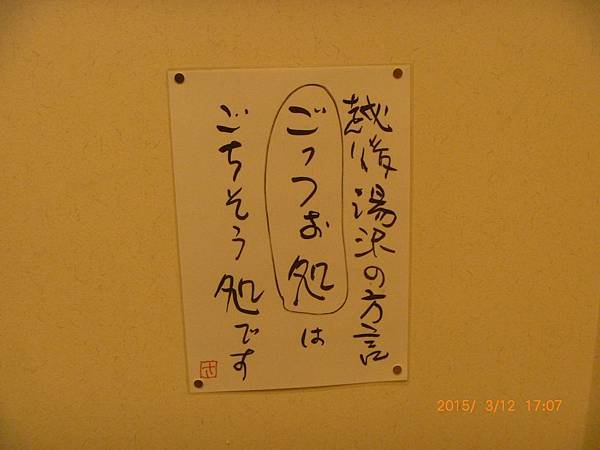 越後湯沢の方言
ごっつお処は
ごちそう処です
2015/ 3/12 17:07